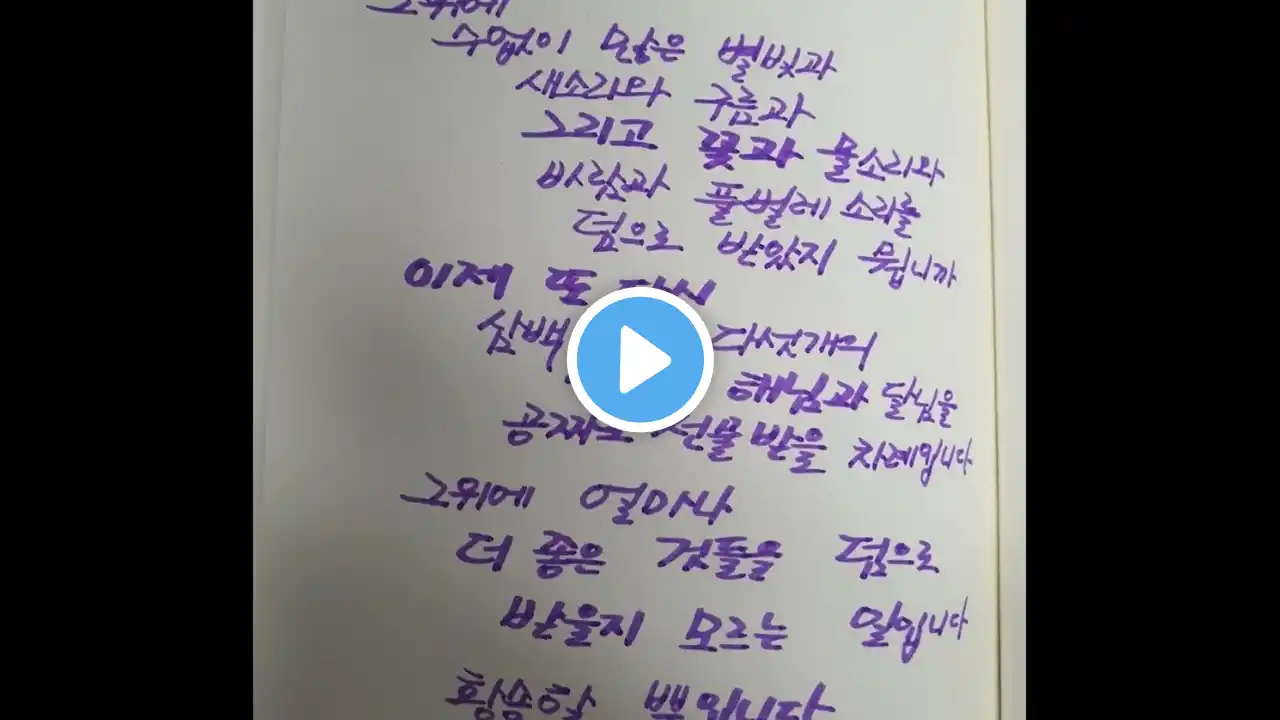 그위에
수없이 많은 별빛과
새소리와 구름과
그리고 꽃과 물소리와
바람과 풀벌레 소리를
덤으로 받았지 뭡니까
이제 또 다시
삼백 다섯개의
해님과 달님을
공짜로 선물 받을 차례입니다
그위에 얼마나
더 좋은 것들을 덤으로
받을지 모르는 일입니다
황송할 뿐입니다